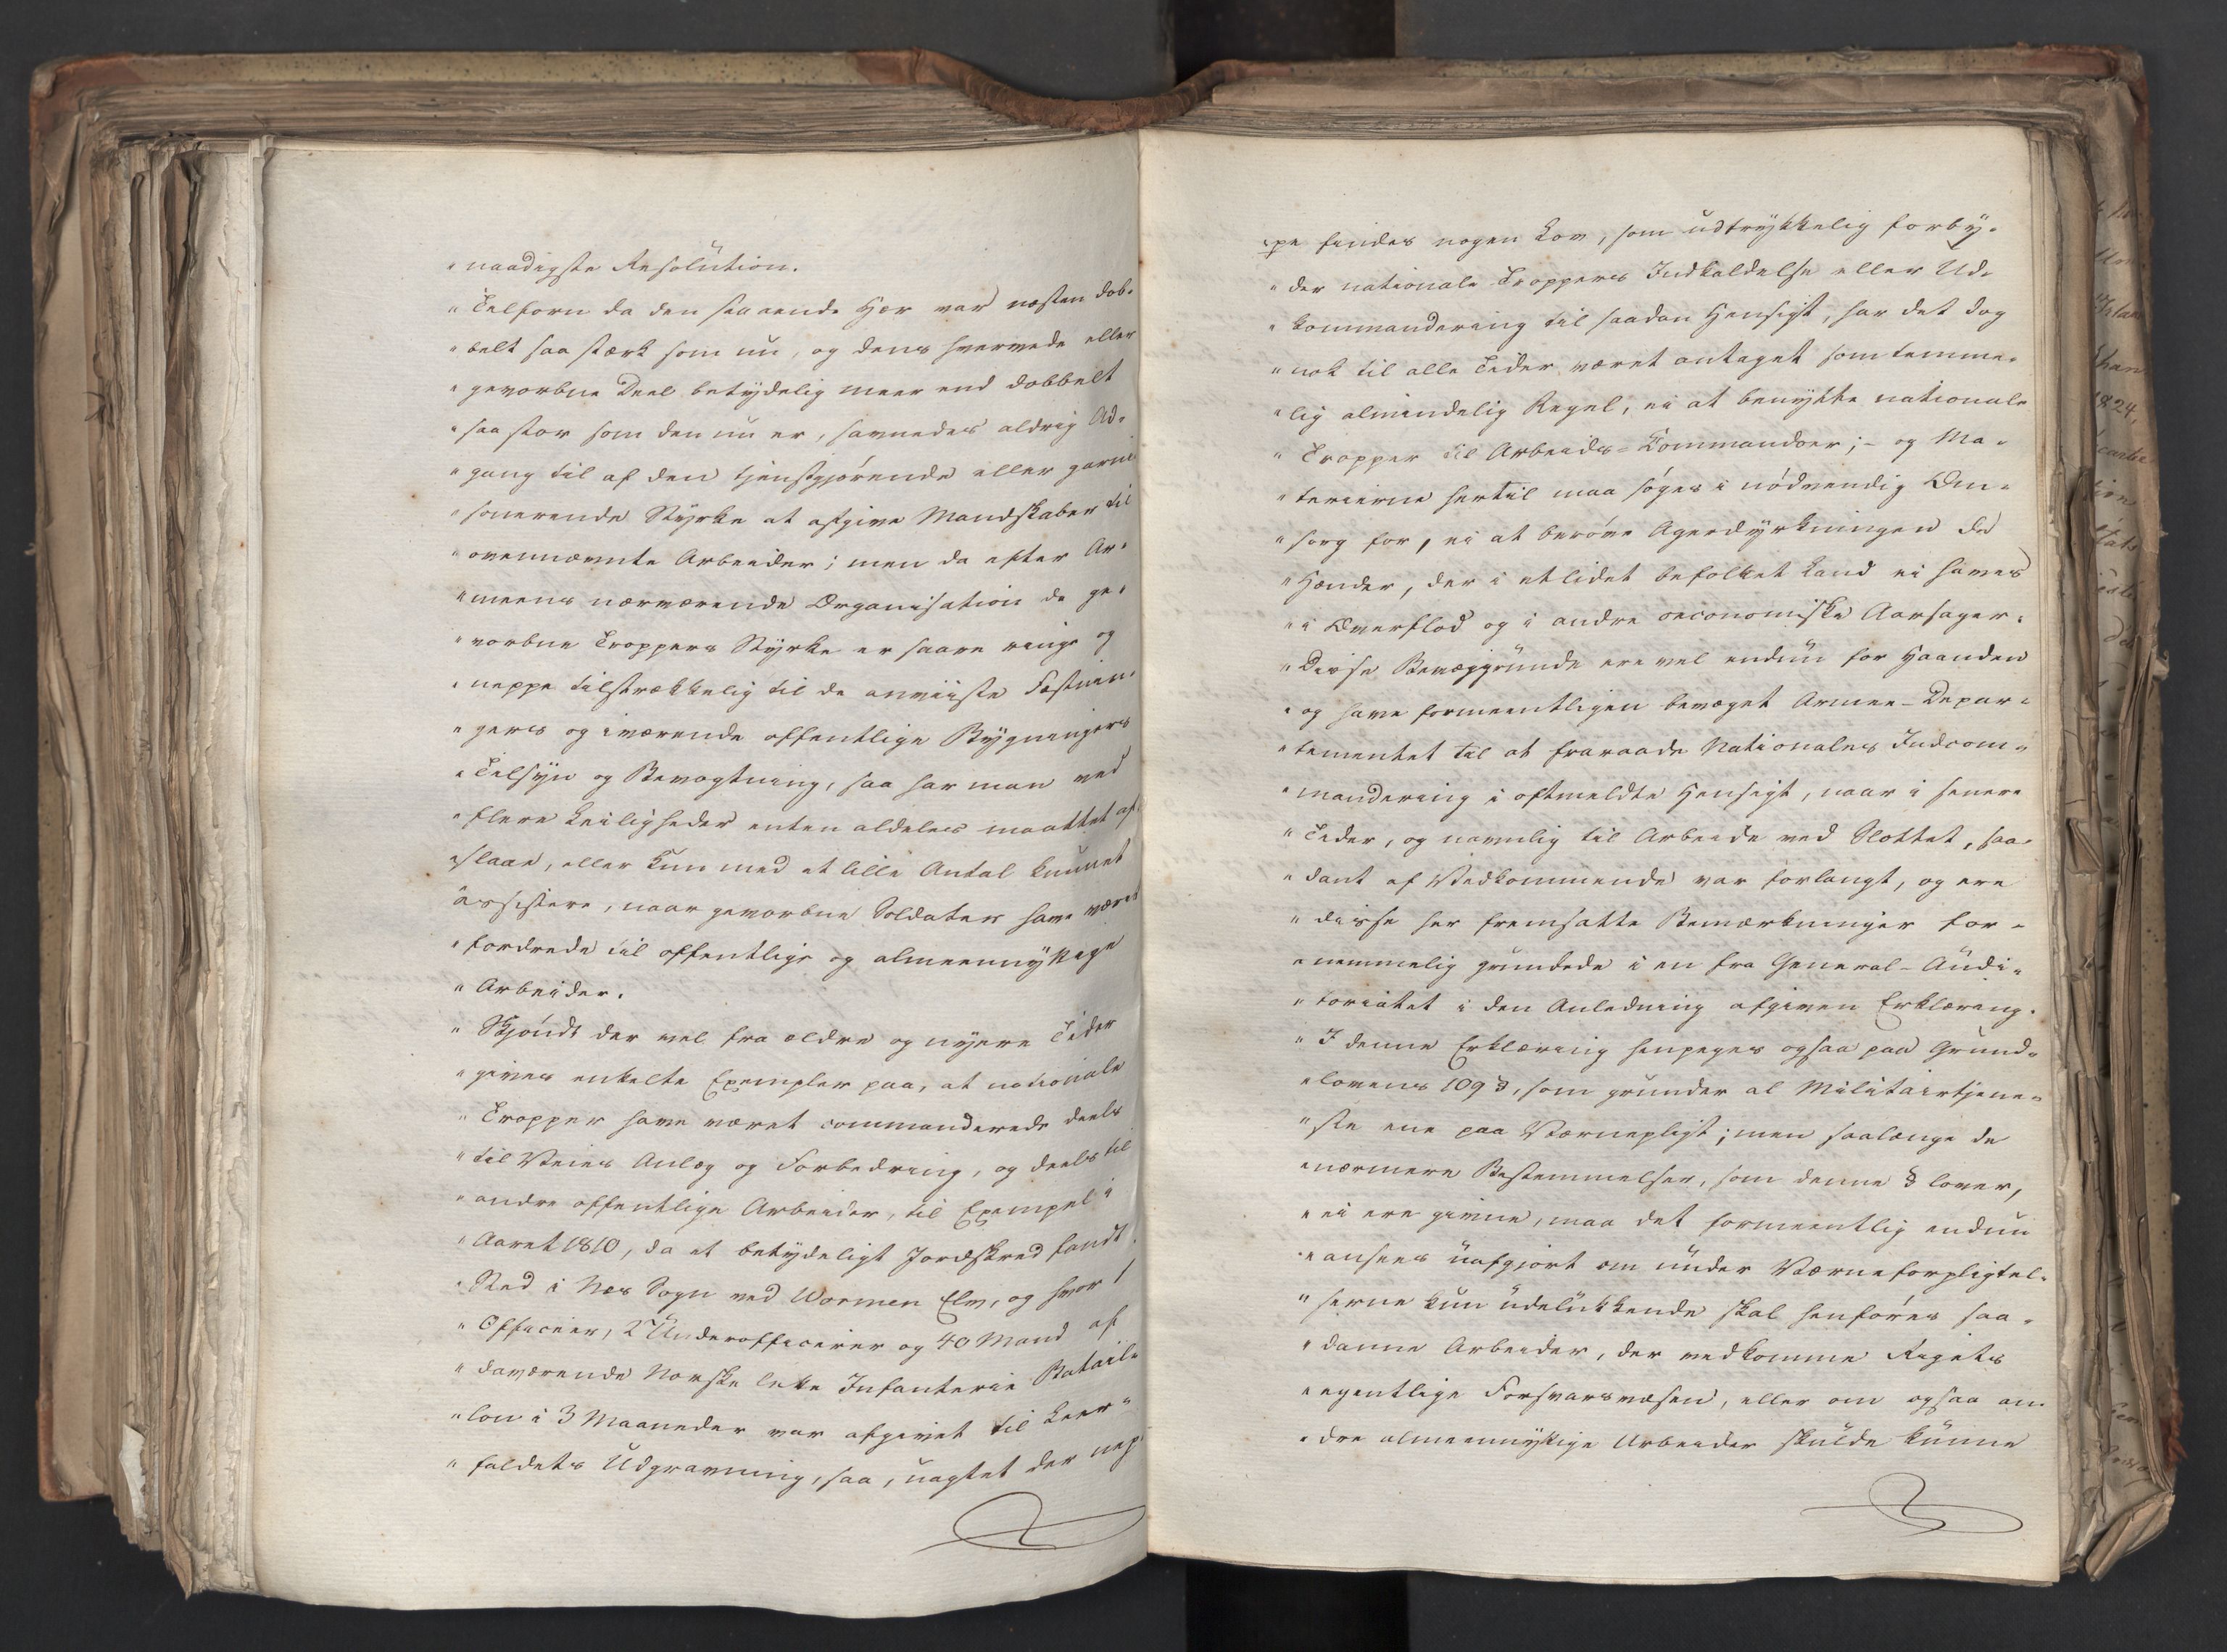 „naadigste Resolution.
„Tilforn da den staaende Hær var næsten dob-
„belt saa stærk som nu, og dens hvervede eller
„gevorbne Deel betydelig meer end dobbelt
„saa stor som den nu er, savnedes aldrig Ad-
„gang til af den tjenstgjørende eller garni
„sonerende Styrke at afgive Mandskaber til
„ovennævnte Arbeider; men da efter Ar-
„meens nærværende Organisation de ge-
„vorbne Troppers Styrke er saare ringe og
„neppe tilstrækkelig til de anviiste Fæstnin-
„gers og iværende offentlige Bygningers
„Tilsyn og Bevogtning, saa har man ved
„flere Leiligheder enten aldeles maattet af-
„slaae, eller kun med et lille Antal kunnet
assistere, naar gevorbne Soldater have været
„fordrede til offentlige og almeennyttige
„Arbeider.
„Skjøndt der vel fra ældre og nyere Tider
„gives enkelte Exempler paa, at nationale
„Tropper have været commanderede deels
„til Veies Anlæg og Forbedring, og deels til
„andre offentlige Arbeider, til Exempel i
„Aaret 1810, da et betydeligt Jordskred fandt
„Sted i Næs Sogn ved Wormen Elv, og hvor 1
„Officeer, 2 Underofficerer og 40 Mand af
„daværende Norske lette Infanterie Batail-
„lon i 3 Maaneder var afgivet til Leer-
„faldets Udgravning, saa, uagtet der nep-
„pe findes nogen Lov, som udtrykkelig forby-
„der nationale Troppers Indkaldelse eller Ud-
„kommandering til saadan Hensigt, har det dog
„nok til alle Tider været antaget som temme-
„lig almindelig Regel, ei at benytte nationale
„Tropper til Arbeids-Commandoer; - og Ma-
„terierne hertil maa søges i nødvendig Om-
„sorg for, ei at berøve Agerdyrkningen de
„Hænder, der i et lidet befolket Land ei haves
„i Overflod og i andre oeconomiske Aarsager.
„Disse Bevæggrunde ere vel endnu for Haanden
„og have formeentligen bevæget Armee-Depar-
„tementet til at fraraade Nationales Indcom-
„mandering i oftmeldte Hensigt, naar i senere
„Tider, og navnlig til Arbeide ved Slottet, saa-
„dant af Vedkommende var forlangt, og ere
„disse her fremsatte Bemærkninger for-
„nemmelig grundede i en fra General-Audi-
„toriatet i den Anledning afgiven Erklæring.
„I denne Erklæring henpeges ogsaa paa Grund-
„lovens 109 §, som grunder al Militairtjene-
„ste ene paa Værnepligt; men saalænge de
„nærmere Bestemmelser, som denne § lover,
„ei ere givne, maa det formeentlig endnu
„ansees uafgjort om under Værneforpligtel-
„serne kun udelukkende skal henføres saa-
„danne Arbeider, der vedkomme Rigets
„egentlige Forsvarsvæsen, eller om ogsaa an-
„dre almeennyttige Arbeider skulde kunne